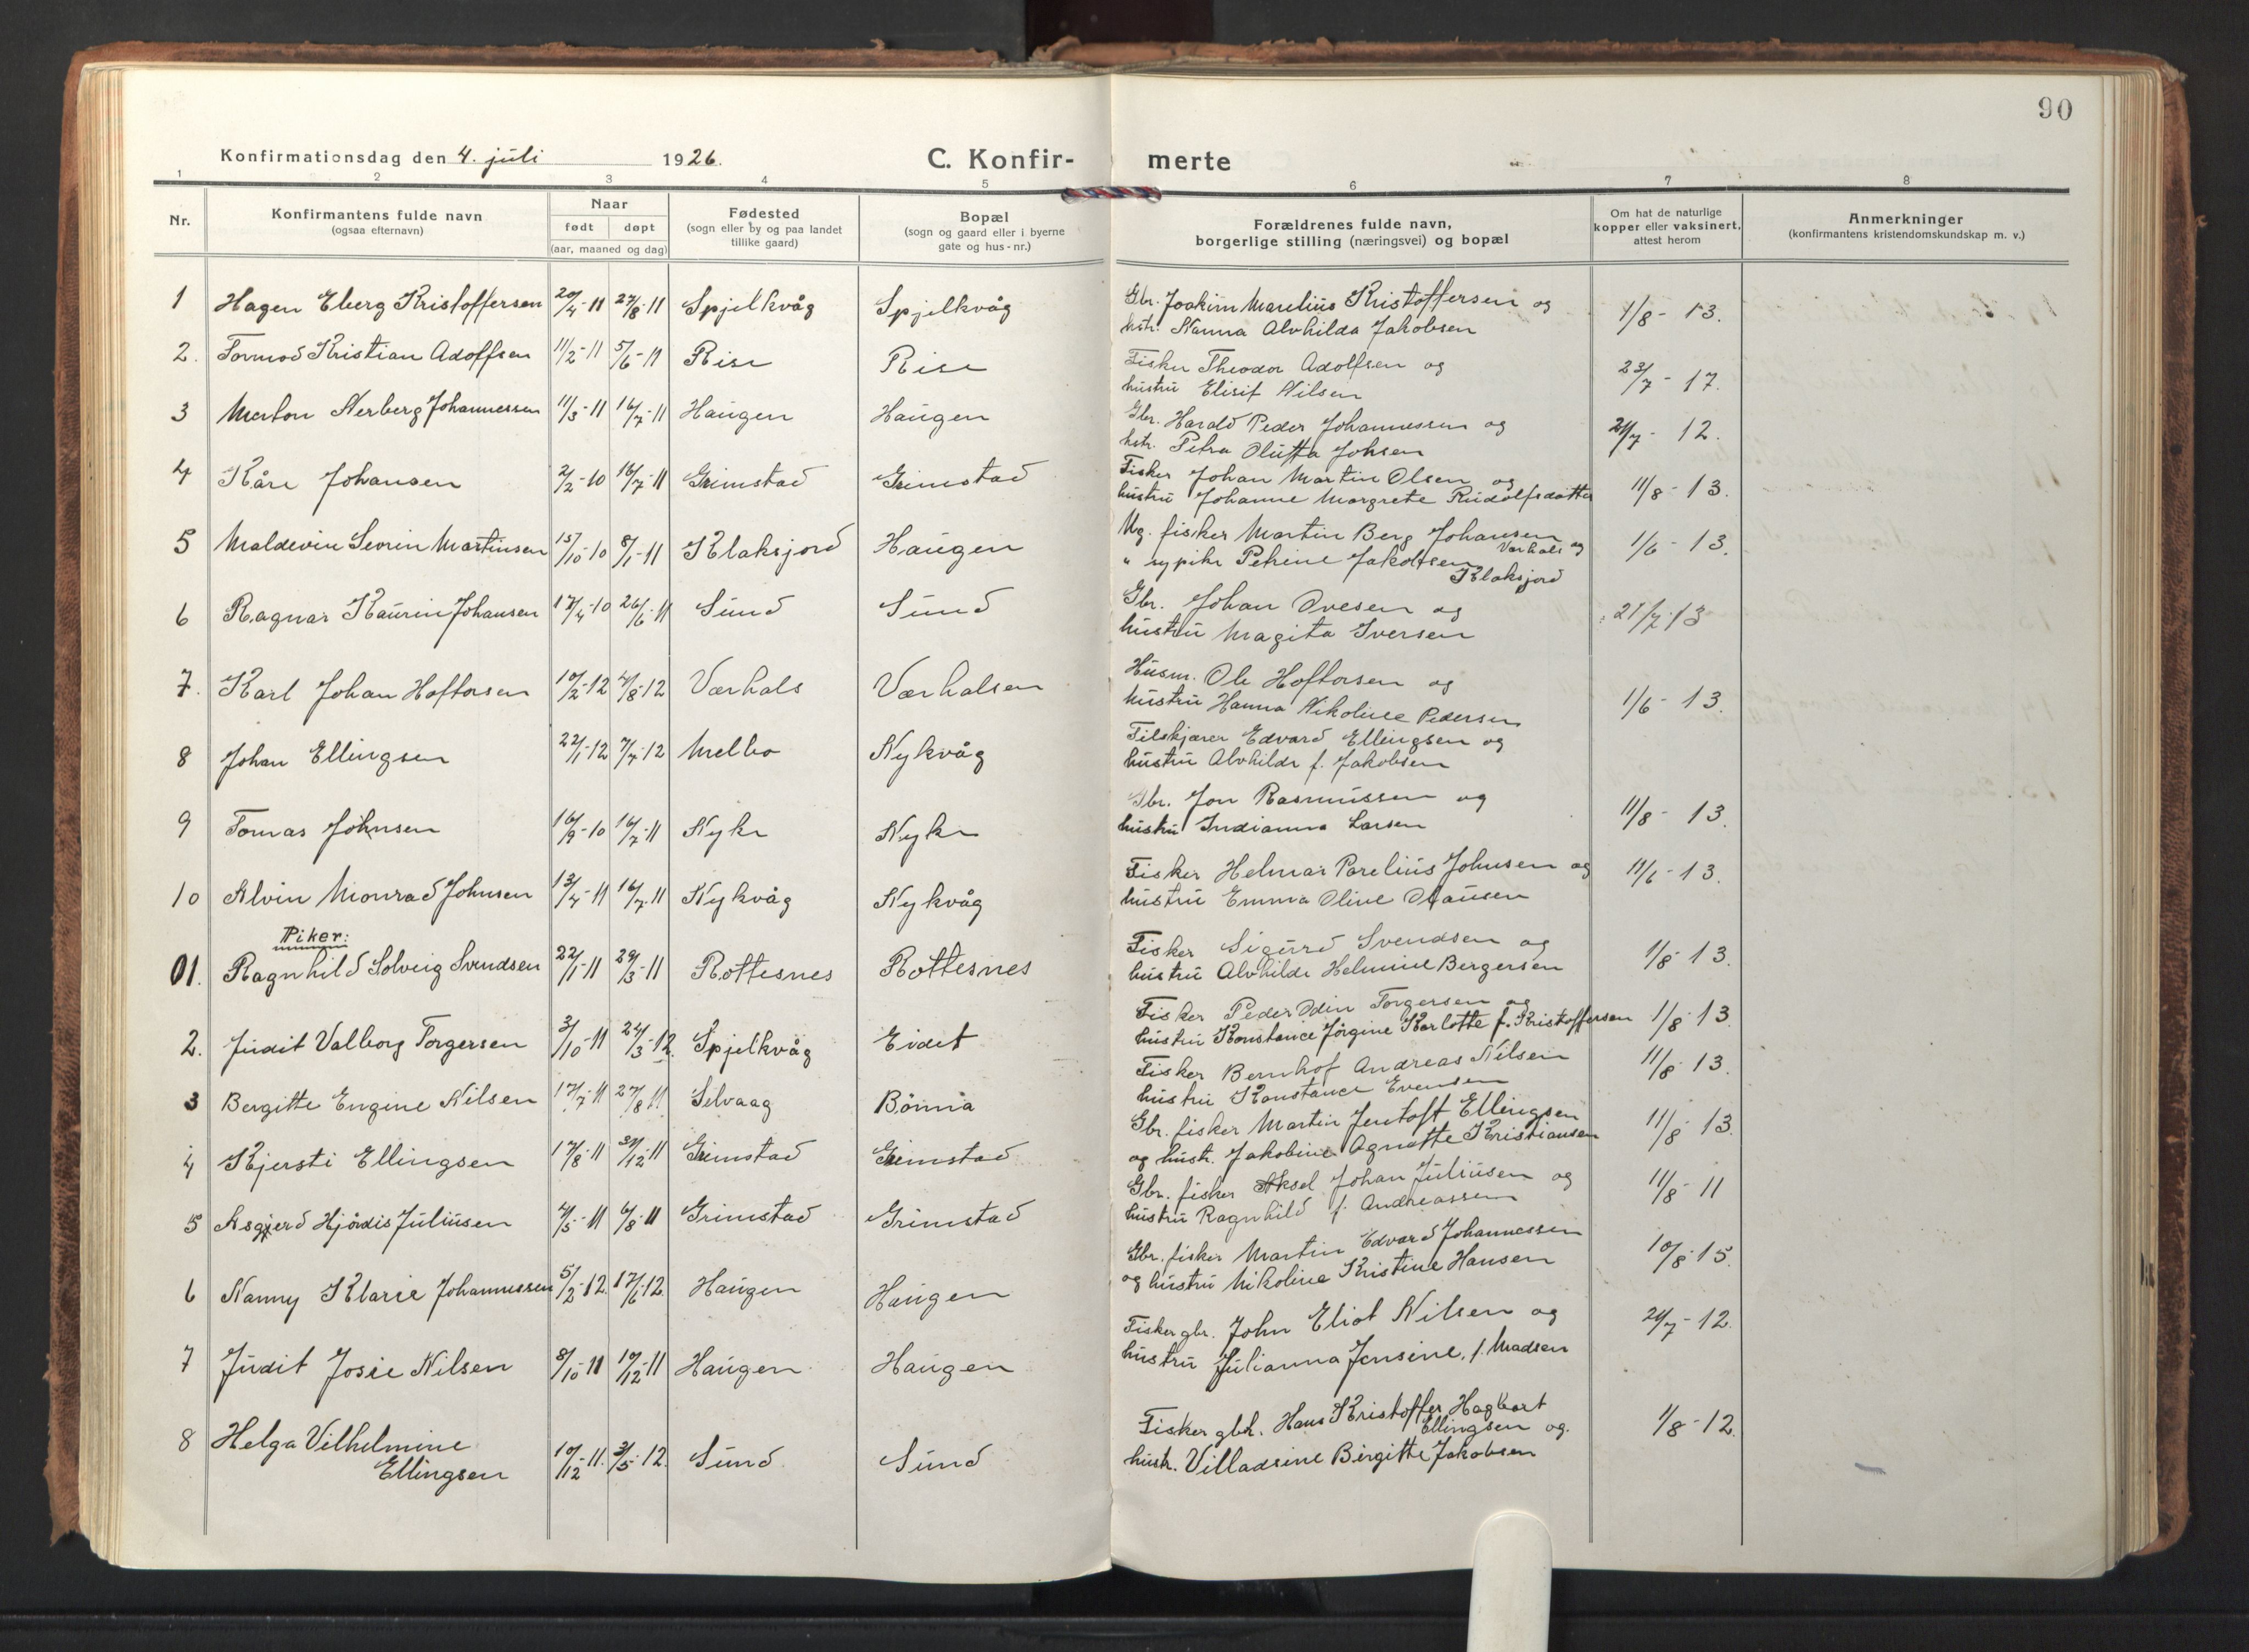 90
Konfirmationsdag den 4. juli 1926. C. Konfir- merte
1 2 3 4 5 6 7 8
Nr. Konfirmantens fulde navn (ogsaa efternavn) Naar født døpt (aar, maaned og dag) Fødested (sogn eller by og paa landet tillike gaard) Bopæl (sogn og gaard eller i byerne gate og hus-nr.) Forældrenes fulde navn, borgerlige stilling (næringsvei) og bopæl Om hat de naturlige kopper eller vaksinert, attest herom Anmerkninger (konfirmantens kristendomskundskap m. v.)
1 Hagen Eberg Kristoffersen 20/4-11 27/8-11 Spjelkvåg Spjelkvåg Gbr. Joakim Marelius Kristoffersen og 1/8-13.
hstr. Nanna Alvhilda Jakobsen
2. Tormod Kristian Adolfsen 11/2-11 5/6-11 Rise Rise Fisker Theodor Adolfsen og 23/7-17.
hustru Elisif Nilsen
3 Morton Nerberg Johannessen 11/3-11 16/7-11 Haugen Haugen Gbr. Harald Peder Johannessen og 24/7-12.
hstr. Petra Olufta Johsen
4 Kåre Johansen 2/2-10 16/7-11 Grimstad Grimstad Fisker Johan Martin Olsen og 11/8-13.
hustru Johanne Margrete Rudolfsdatter
5 Maldevin Sevrin Martinsen 15/10-10 8/1-11 Klaksjord Haugen Ug. fisker Martin Berg Johansen Værhals og 1/6-13.
" sypike Petrine Jakobsen Klaksjord
6 Ragnar Kaurin Johansen 17/4-10 26/6-11 Sund Sund Gbr. Johan Ovesen og 21/7-13
hustru Magita Iversen
7. Karl Johan Hoftorsen 10/2-12 4/8-12 Værhals Værhalsen Husm. Ole Hoftorsen og 1/6-13.
hustru Hanna Nikoline Pedersen
8 Johan Ellingsen 22/1-12 7/7-12 Melbo Nykvåg Filskjærer Edvard Ellingsen og
hustru Alvhilde f. Jakobsen
9 Tomas Johnsen 16/9-10 16/7-11 Nyke Nyke Gbr. Jon Rasmussen og 11/8-13.
hustru Indianna Larsen
10 Alvin Monrad Johnsen 13/4-11 16/7-11 Nykvåg Nykvåg Fisker Helmar Parelius Johnsen og 11/6-13.
hustru Emma Oline Hansen
Piker:
01. Ragnhild Solveig Svendsen 22/1-11 29/3-11 Rottesnes Rottesnes Fisker Sigurd Svendsen og 1/8-13.
hustru Alvhilde Helmine Bergersen
2. Judit Valborg Torgersen 3/10-11 24/3-12. Spjelkvåg Eidet Fisker Peder Odin Torgersen og 1/8-13
hustru Konstance Jörgine Karlotte f. Kristoffersen
3 Bergitte Engine Nilsen 17/7-11 27/8-11 Selvaag Bömia Fisker Bernhof Andreas Nilsen 11/8-13.
hustru Konstance Evensen
4 Kjersti Ellingsen 17/8-11 31/12-11 Grimstad Grimstad Gbr. fisker Martin Jentoft Ellingsen 11/8-13.
og hustr. Jakobine Agnette Kristiansen
5 Asgjerd Hjördis Juliusen 4/5-11 6/8-11 Grimstad Grimstad Gbr. fisker Aksel Johan Juliusen og 11/8-11
hustru Ragnhild f. Andreassen
6 Nanny Klarie Johannessen 5/2-12. 17/6-12. Haugen Haugen Gbr. fisker Martin Edvard Johannessen 10/8-15.
og hustru Nikoline Kristine Hansen
7 Judit Josie Nilsen 8/10-11 10/12-11 Haugen Haugen Fisker gbr. John Eliot Nilsen og 24/7-12.
hustru Julianna Jensine, f. Madsen
8 Helga Vilhelmine Ellingsen 10/12-11. 3/5-12. Sund Sund Fisker gbr. Hans Kristoffer Hagbart Ellingsen og. 1/8-12.
hustr. Villadsine Birgitte Jakobsen